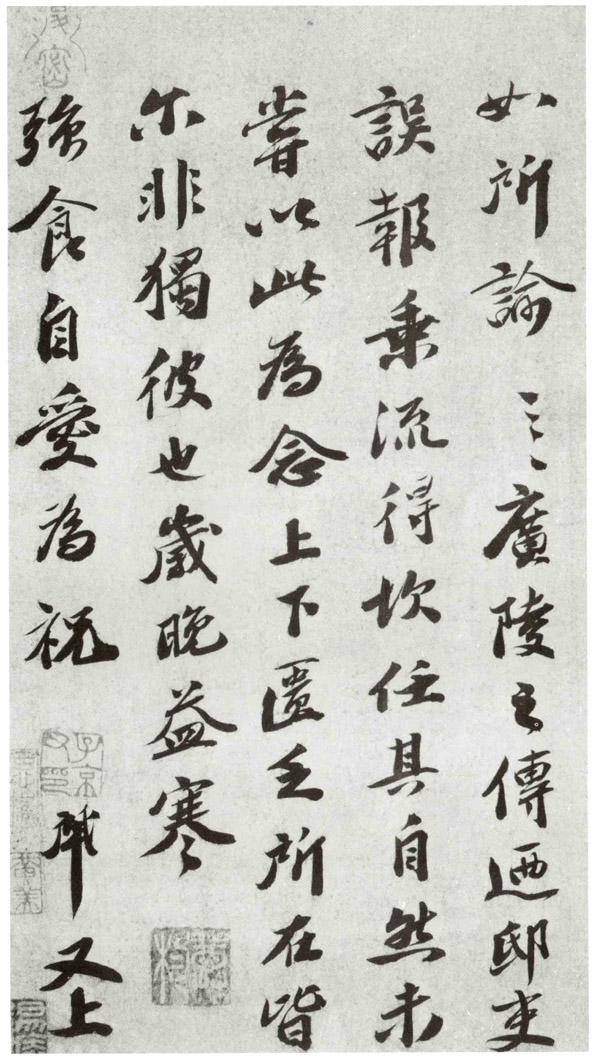 如所諭廣陵之傳迺邸吏
誤報乘流得坎任其自然未
嘗以此為念上下匱乏所在皆
尔非獨彼也歲晚益寒
強食自愛為祝 又上
子京父印